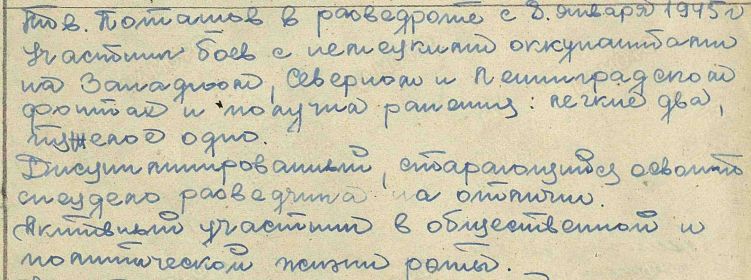 Тов. Поташов в разведроте с 8. января 1945 г
Участник боев с немецкими оккупантами
на Западном, Северном и Ленинградском
фронтах и получил ранения: легкие два,
тяжелое одно.
Дисциплинированный, старающийся освоить
спецдело разведчика на отлично.
Активный участник в общественной и
политической жизни роты.